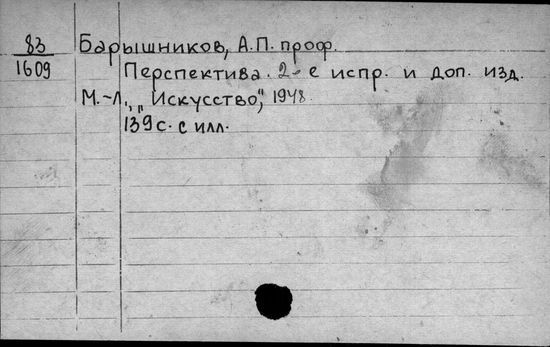 83
1609
Барышников, А.П. проф.
Перспектива. 2-е испр. и доп. изд.
М.-Л., „Искусство", 1948.
139 с. с илл.